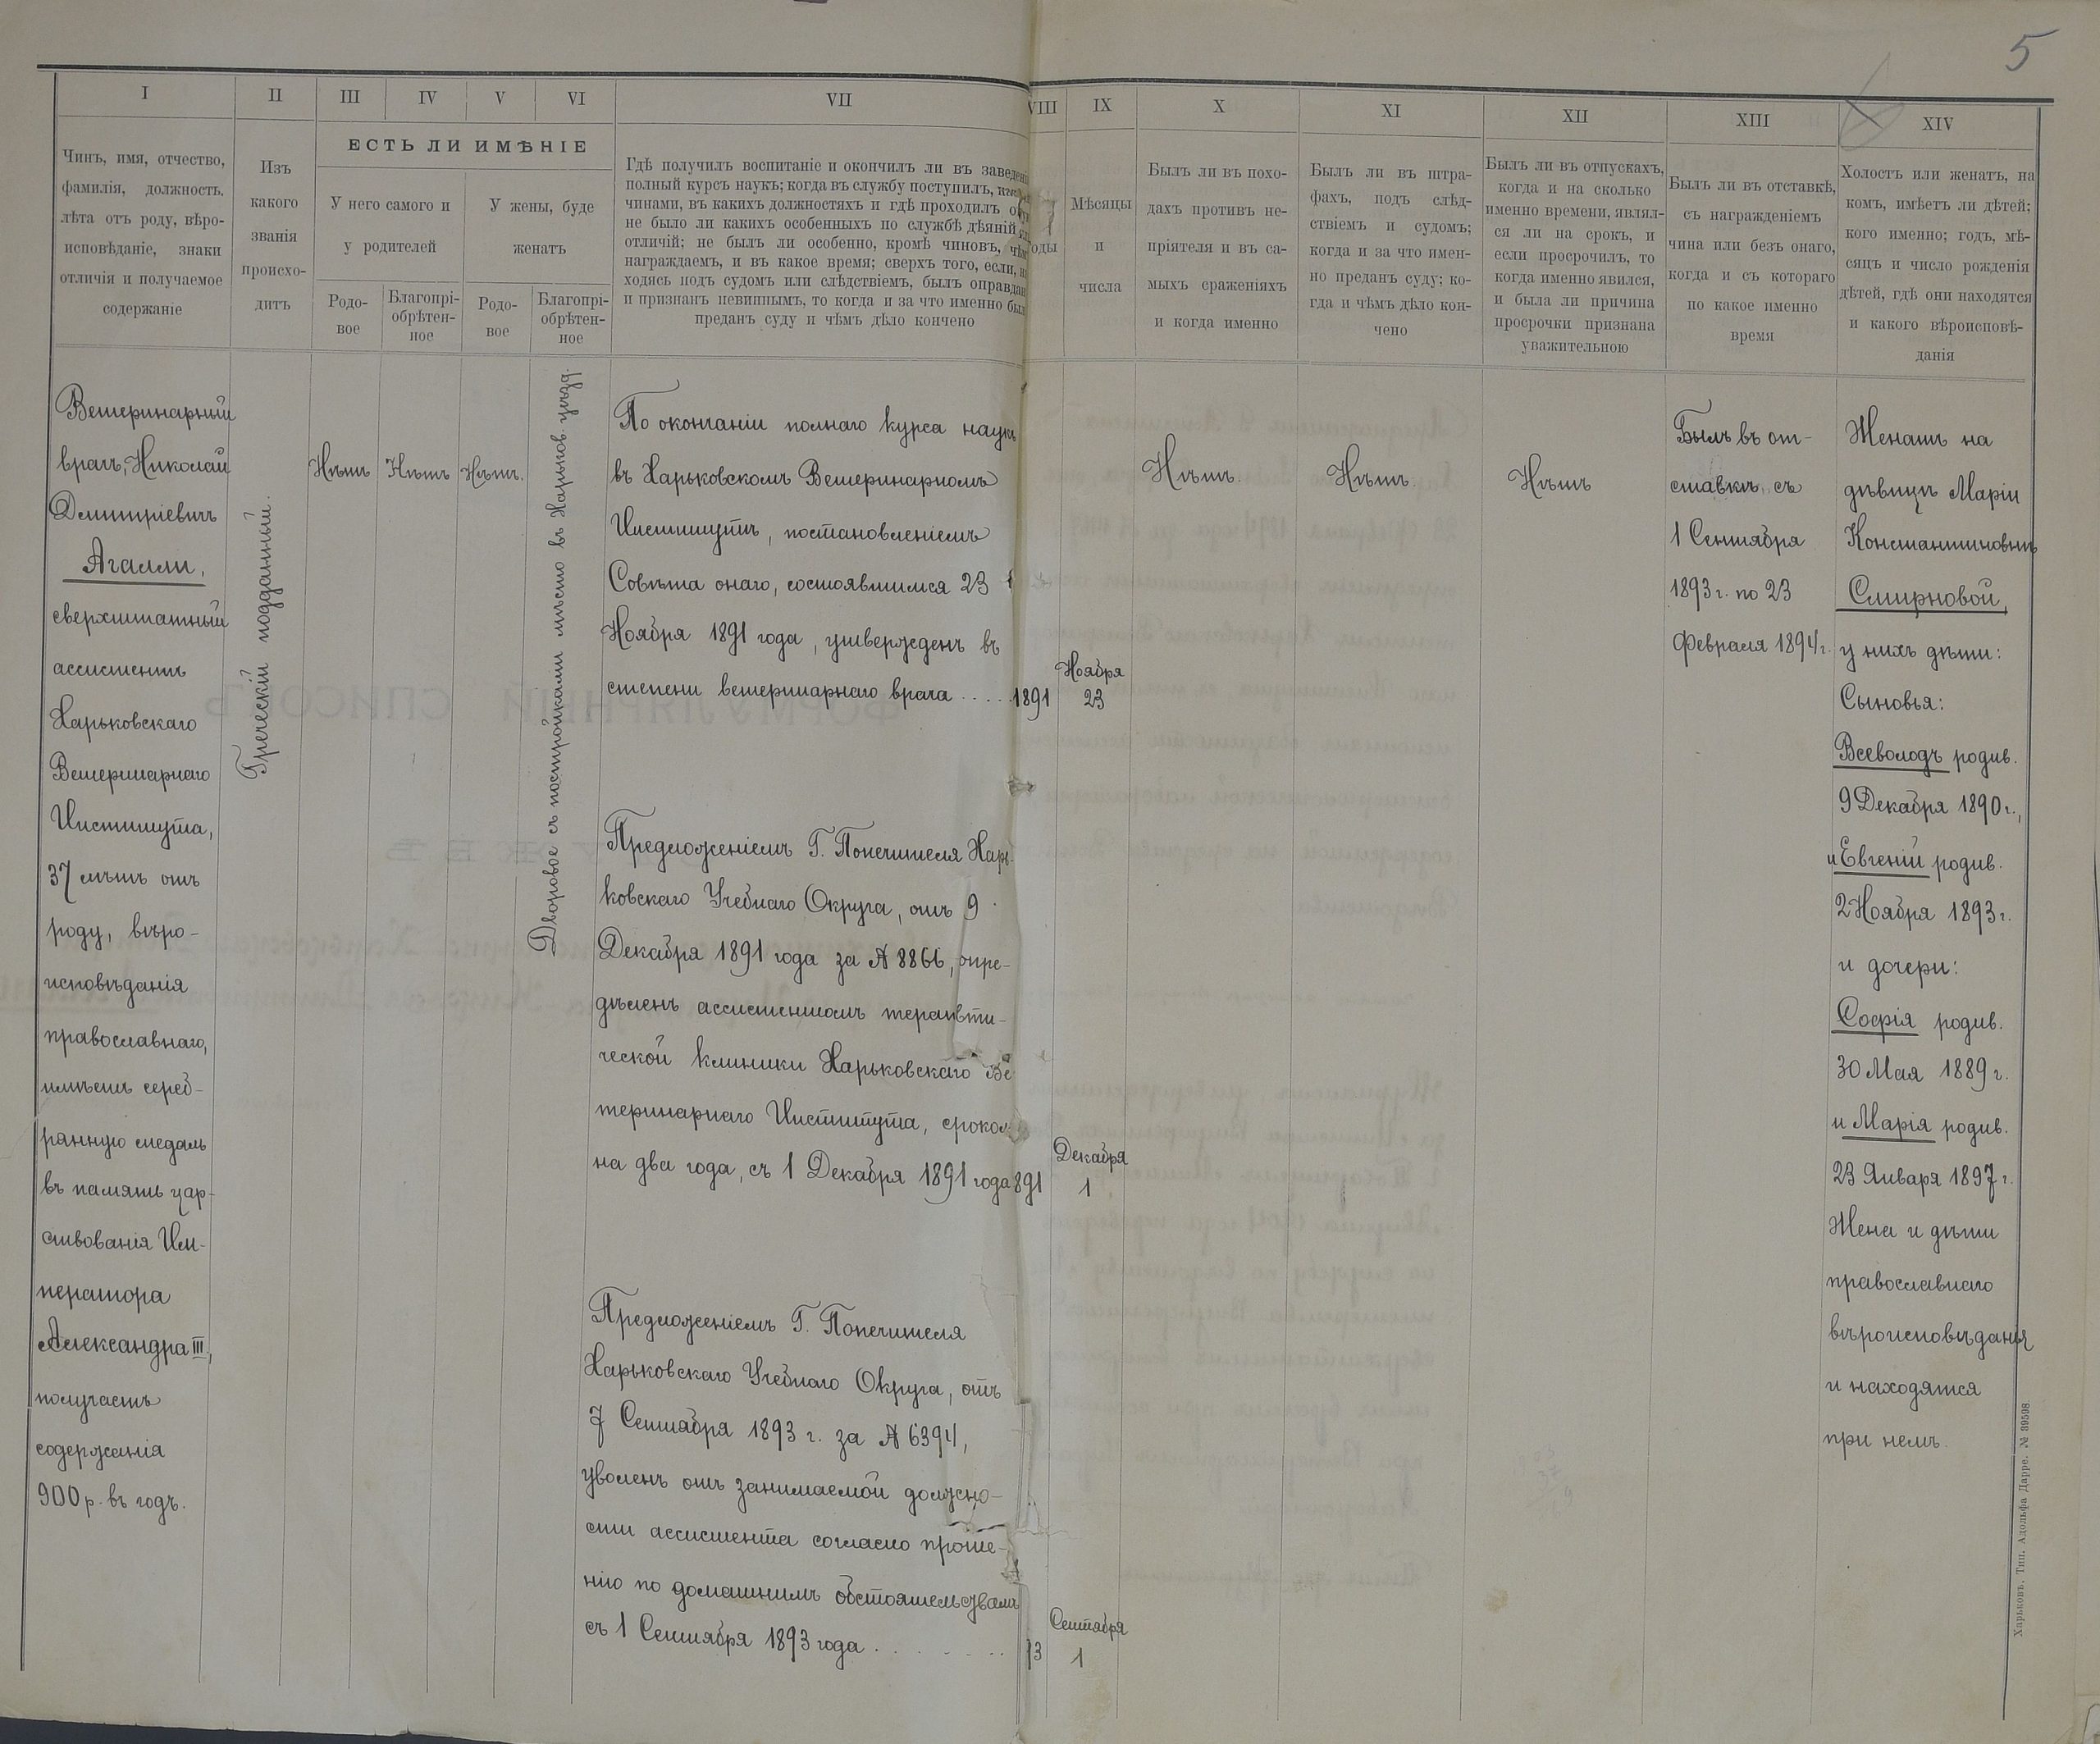 5
I
II
III
IV
V
VI
VII
VIII
IX
X
XI
XII
XIII
XIV
Чинъ, имя, отчество,
фамилія, должность,
лѣта отъ роду, вѣро-
исповѣданіе, знаки
отличія и получаемое
содержаніе
Изъ
какого
званія
происхо-
дитъ
ЕСТЬ ЛИ ИМѢНІЕ
У него самого и
у родителей
У жены, буде
женатъ
Родо-
вое
Благопрі-
обрѣтен-
ное
Родо-
вое
Благопрі-
обрѣтен-
ное
Гдѣ получилъ воспитаніе и окончилъ ли въ заведеніи
полный курсъ наукъ; когда въ службу поступилъ,
чинами, въ какихъ должностяхъ и гдѣ проходилъ
не было ли какихъ особенныхъ по службѣ дѣяній
отличій; не былъ ли особенно, кромѣ чиновъ, чѣмъ
награждаемъ, и въ какое время; сверхъ того, если, на
ходясь подъ судомъ или слѣдствіемъ, былъ оправдан
и признанъ невиннымъ, то когда и за что именно был
преданъ суду и чѣмъ дѣло кончено
оды
Мѣсяцы
и
числа
Былъ ли въ похо-
дахъ противъ не-
пріятеля и въ са-
мыхъ сраженіяхъ
и когда именно
Былъ ли въ штра-
фахъ, подъ слѣд-
ствіемъ и судомъ;
когда и за что имен-
но преданъ суду; ко-
гда и чѣмъ дѣло кон-
чено
Былъ ли въ отпускахъ,
когда и на сколько
именно времени, являл-
ся ли на срокъ, и
если просрочилъ, то
когда именно явился,
и была ли причина
просрочки признана
уважительною
Былъ ли въ отставкѣ,
съ награжденіемъ
чина или безъ онаго,
когда и съ котораго
по какое именно
время
Холостъ или женатъ, на
комъ, имѣетъ ли дѣтей;
кого именно; годъ, мѣ-
сяцъ и число рожденія
дѣтей, гдѣ они находятся
и какого вѣроисповѣ-
данія
Ветеринарный
врачъ, Николай
Дмитріевичъ
Агалли,
сверхштатный
ассистентъ
Харьковскаго
Ветеринарнаго
Института,
37 лѣтъ отъ
роду, вѣро-
исповѣданія
православнаго,
имѣетъ сереб-
рянную медаль
въ память цар-
ствованія Им-
ператора
Александра III,
получаетъ
содержанія
900 р. въ годъ.
Греческій подданный.
Нѣтъ
Нѣтъ
Нѣтъ.
Дворовое съ постройками мѣсто въ Харьков. уѣзд.
По окончаніи полнаго курса наукъ
въ Харьковскомъ Ветеринарномъ
Институтѣ, постановленіемъ
Совѣта онаго, состоявшимся 23
Ноября 1891 года, утвержденъ въ
степени ветеринарнаго врача . . . . 1891
Ноября
23
Предложеніемъ Г. Попечителя Харь-
ковскаго Учебнаго Округа, отъ 9
Декабря 1891 года за № 8866, опре-
дѣленъ ассистентомъ терапевти-
ческой клиники Харьковскаго Ве
теринарнаго Института, срокомъ
на два года, съ 1 Декабря 1891 года 891
Декабря
1
Предложеніемъ Г. Попечителя
Харьковскаго Учебнаго Округа, отъ
7 Сентября 1893 г. за № 6394,
уволенъ отъ занимаемой должно-
сти ассистента согласно проше-
нію по домашнимъ обстоятельствамъ
съ 1 Сентября 1893 года . . . . . . . 93
Сентября
1
Нѣтъ.
Нѣтъ.
Нѣтъ
Былъ въ от-
ставкѣ съ
1 Сентября
1893 г. по 23
Февраля 1894 г.
Женатъ на
дѣвицѣ Маріи
Константиновнѣ
Смирновой,
у нихъ дѣти:
Сыновья:
Всеволодъ родив.
9 Декабря 1890 г.,
и Евгеній родив.
2 Ноября 1893 г.
и дочери:
Софія родив.
30 Мая 1889 г.
и Марія родив.
23 Января 1897 г.
Жена и дѣти
православнаго
вѣроисповѣданія
и находятся
при немъ.
Харьковъ. Тип. Адольфа Дарре. № 39598